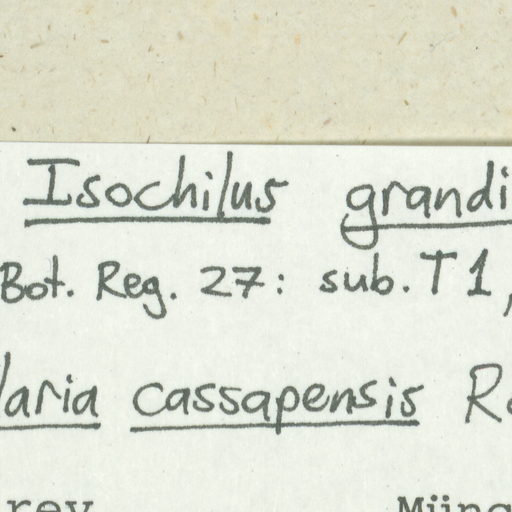 Isochilus grandi
Bot. Reg. 27: sub. T 1,
laria cassapensis R
rev